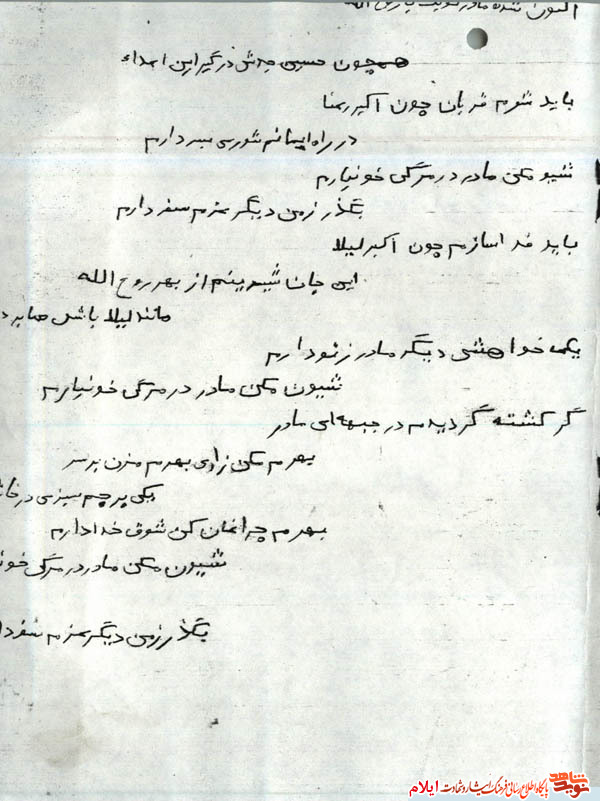 اکنون شده مادر نوبت یاری الله
همچون حسین جدش درگیر این اعداء
باید شوم قربان چون اکبر رعنا
در راه ایمانم شوری بسر دارم
شیو مکن مادر در مرگ خونبارم
بگذر زمن دیگر عزم سفر دارم
باید فدا سازم چون اکبر لیلا
این جان شیرینم از بهر روح الله
مانند لیلا باش صابر د
یک خواهشی دیگر مادر ز تو دارم
شیون مکن مادر در مرگ خونبارم
گر کشته گردیدم در جبهه‌ای مادر
بهرم مکن زاری بهرم مزن بر سر
یکی پرچم سبزی در خا
بهرم چراغان کن شوق خدا دارم
شیون مکن مادر در مرگ خون
بگذر زمن دیگر عزم سفر دا
نوید شاهد
پایگاه اطلاع رسانی فرهنگ ایثار و شهادت ایلام